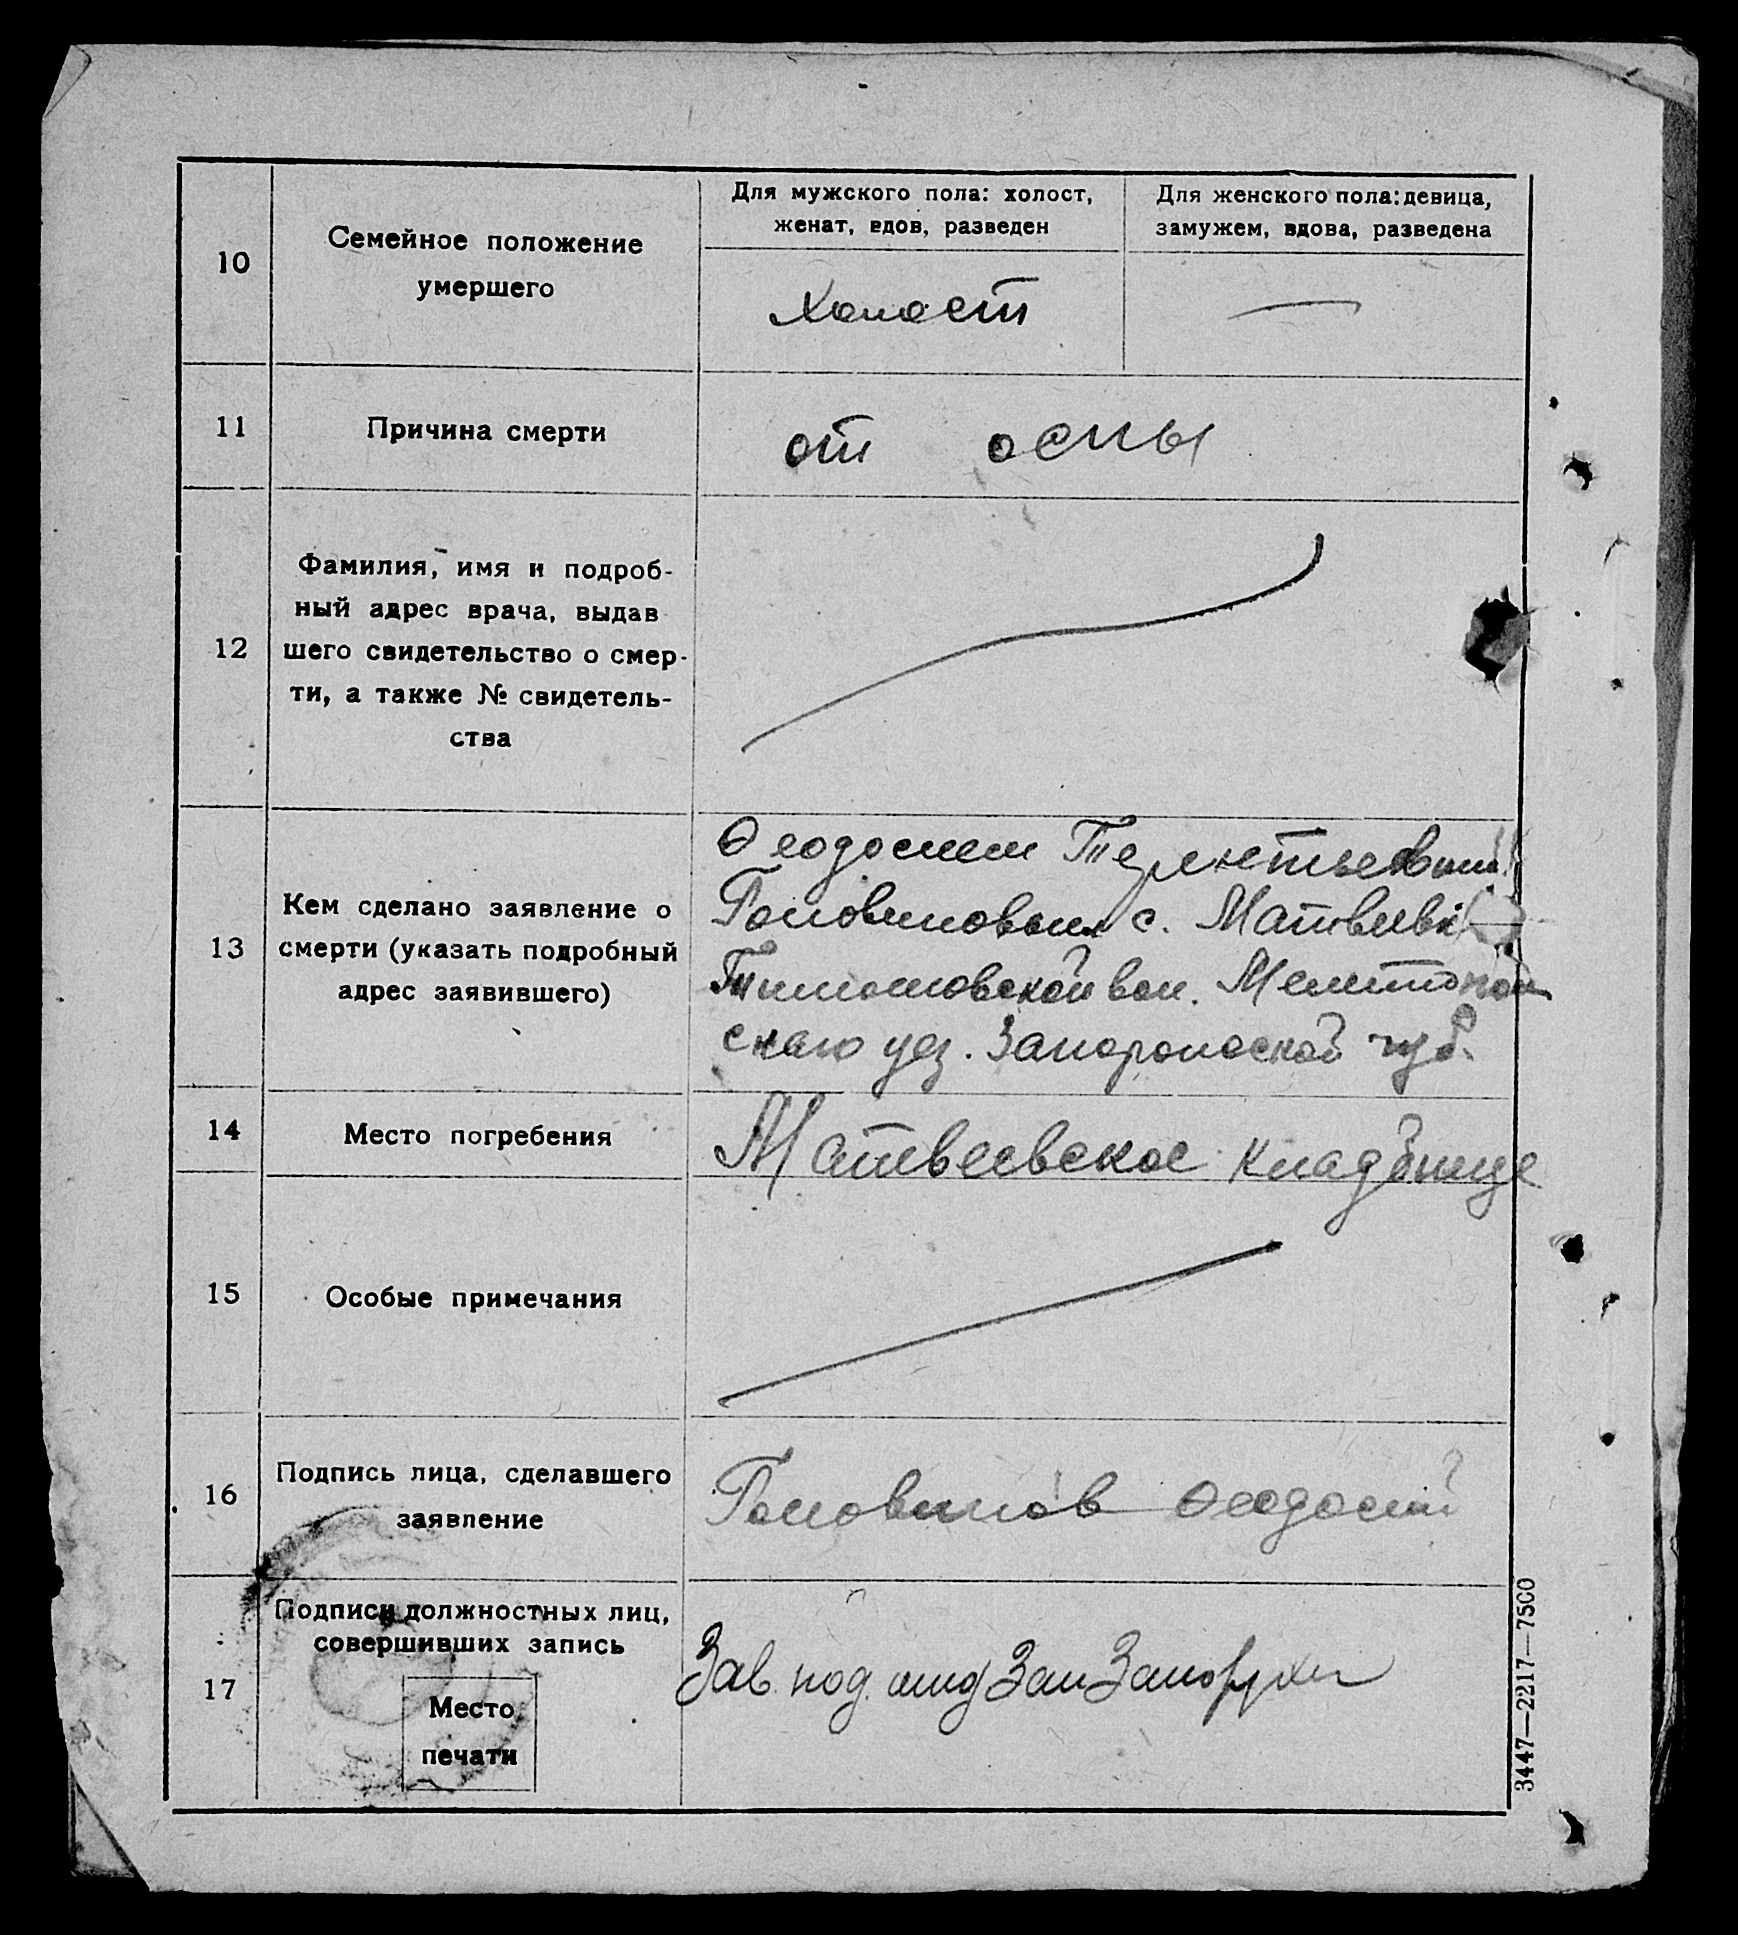 10
Семейное положение
умершего
Для мужского пола: холост,
женат, вдов, разведен
Для женского пола: девица,
замужем, вдова, разведена
Холост
11
Причина смерти
от оспы
12
Фамилия, имя и подроб-
ный адрес врача, выдав
шего свидетельство о смер-
ти, а также № свидетель-
ства
13
Кем сделано заявление о
смерти (указать подробный
адрес заявившего)
Ѳеодосием Терентьевым
Головиновым с. Матвеевк
Тимошовской вол. Мелитопол
скаго уез. Запорожской губ.
14
Место погребения
Матвеевское кладбище
15
Особые примечания
16
Подпись лица, сделавшего
заявление
Головинов Ѳеодосий
17
Подписи должностных лиц,
совершивших запись
Место
печати
Зав. под.
3447—2217—7500